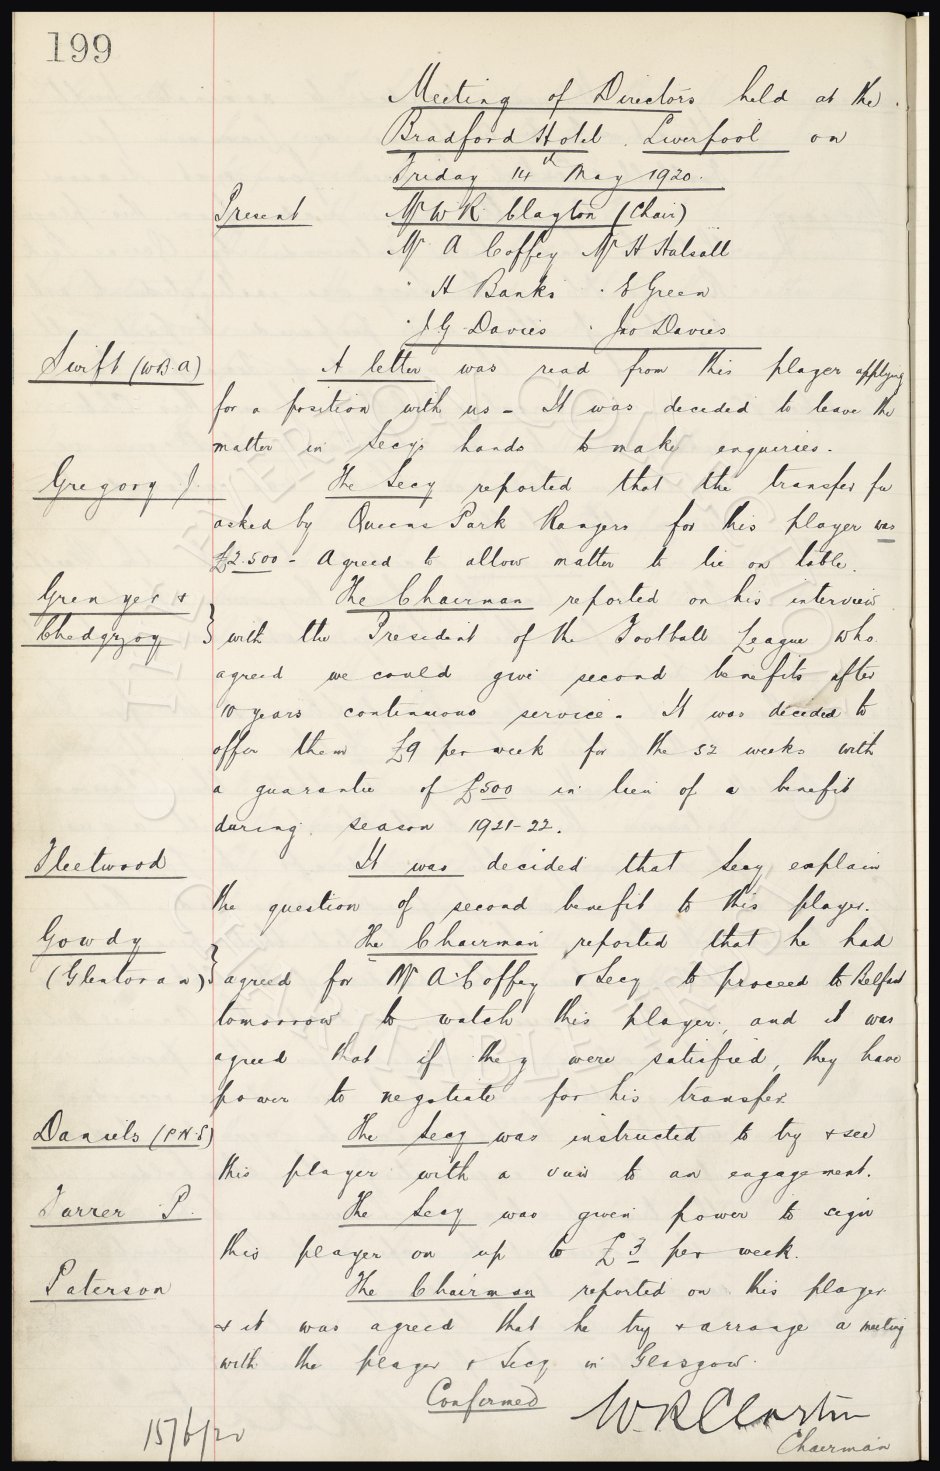 199
Meeting of Directors held at the
Bradford Hotel. Liverpool on
Friday 14th May 1920.
Present Mr W R. Clayton (Chair)
Mr A Coffey Mr H Halsall
" H Banks " E Green
" J G Davies " Jno Davies
Swift (W.B.A) A letter was read from this player applying
for a position with us - It was decided to leave the
matter in Secys hands to make enquiries.
Gregory J. The Secy reported that the transfer fee
asked by Queens Park Rangers for this player was
£2.500 - Agreed to allow matter to lie on table.
Grenyer & The Chairman reported on his interview
Chedgzoy } with the President of the Football League who
agreed we could give second benefits after
10 years continuous service. It was decided to
offer them £9 per week for the 52 weeks with
a guarantee of £500 in lieu of a benefit
during season 1921-22.
Fleetwood It was decided that Secy explain
the question of second benefit to this player.
Gowdy The Chairman reported that he had
(Glentoran) } agreed for Mr A Coffey & Secy to proceed to Belfast
tomorrow to watch this player, and it was
agreed that if they were satisfied, they have
power to negotiate for his transfer.
Daniels (P.N.E) The Secy was instructed to try & see
this player with a view to an engagement.
Farrer P. The Secy was given power to sign
this player on up to £3 per week.
Paterson The Chairman reported on this player
& it was agreed that he try & arrange a meeting
with the player & Secy in Glasgow.
Confirmed W. R Clayton
15/6/20 Chairman
THE EVERTON COLLECTION
CHARITABLE TRUST